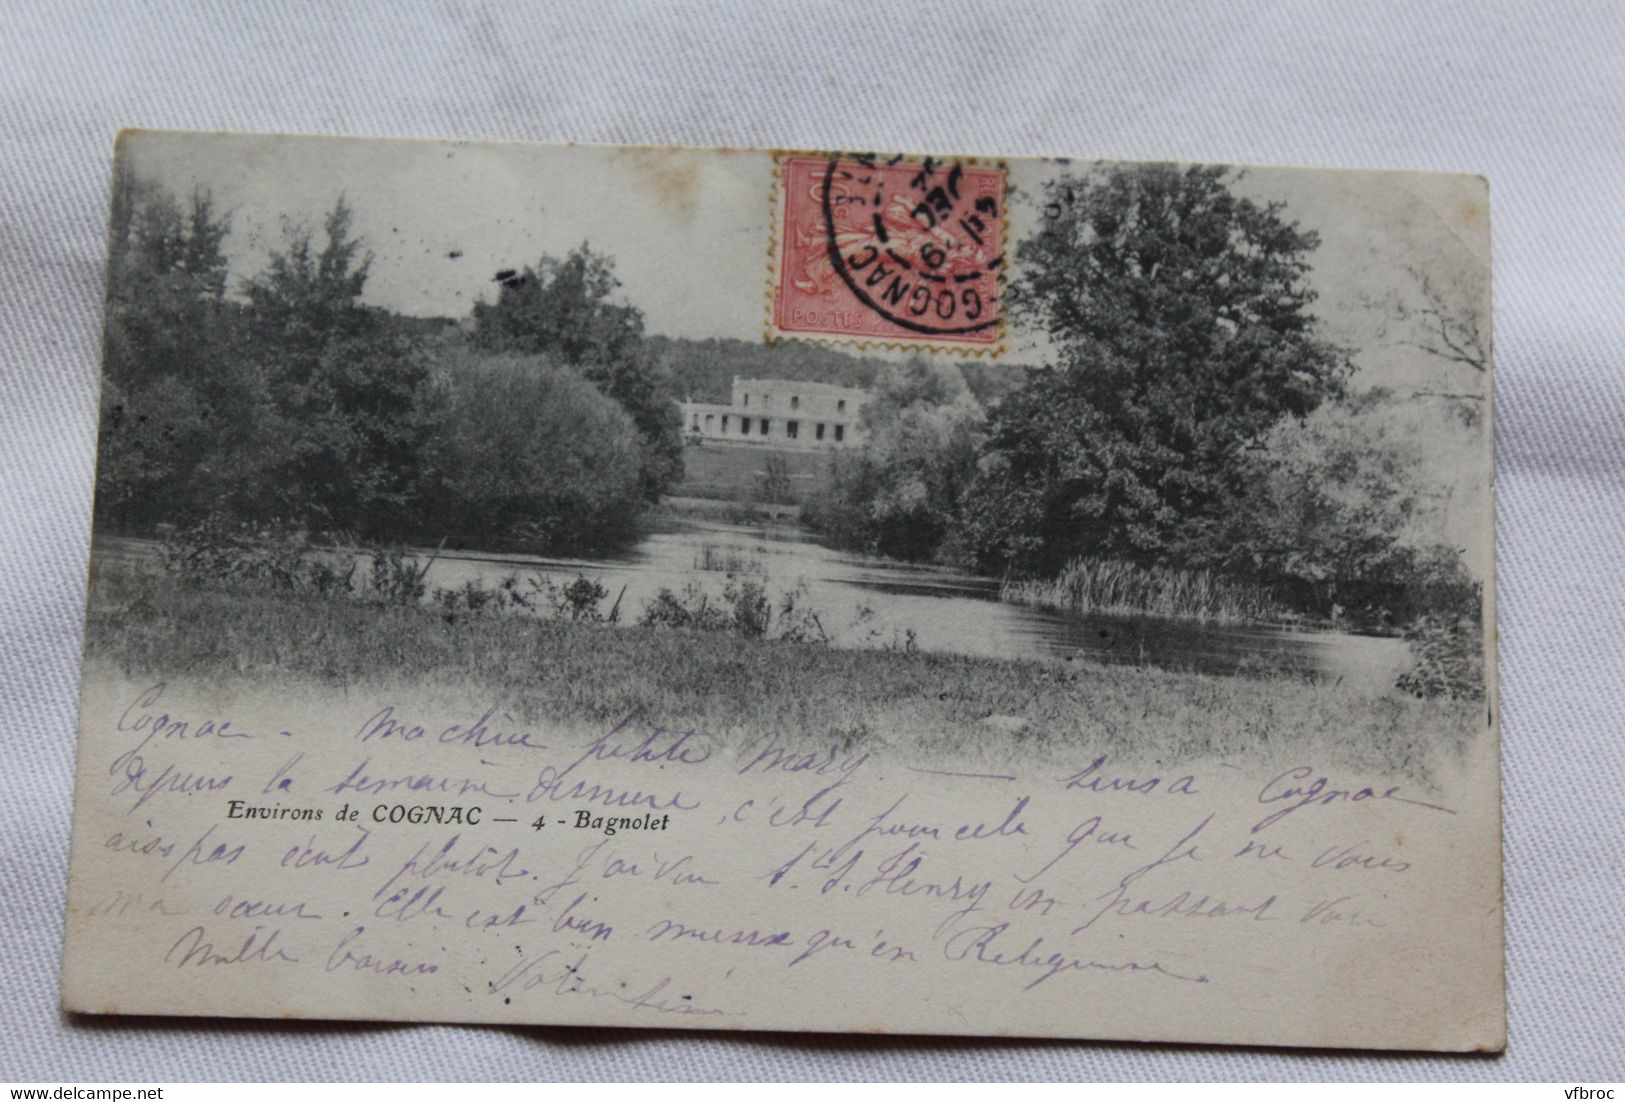 POSTES
COGNAC
DEC
Cognac - Ma chère petite Mary — Suis à Cognac
depuis la semaine dernière, c'est pour cela que je ne vous
Environs de COGNAC — 4 - Bagnolet
ais pas écrit plutôt. J'ai vu St. Henry en passant voir
ma sœur. Elle est bien mieux qu'en Religieuse
Mille baisers Valentine
www.delcampe.net
vfbroc